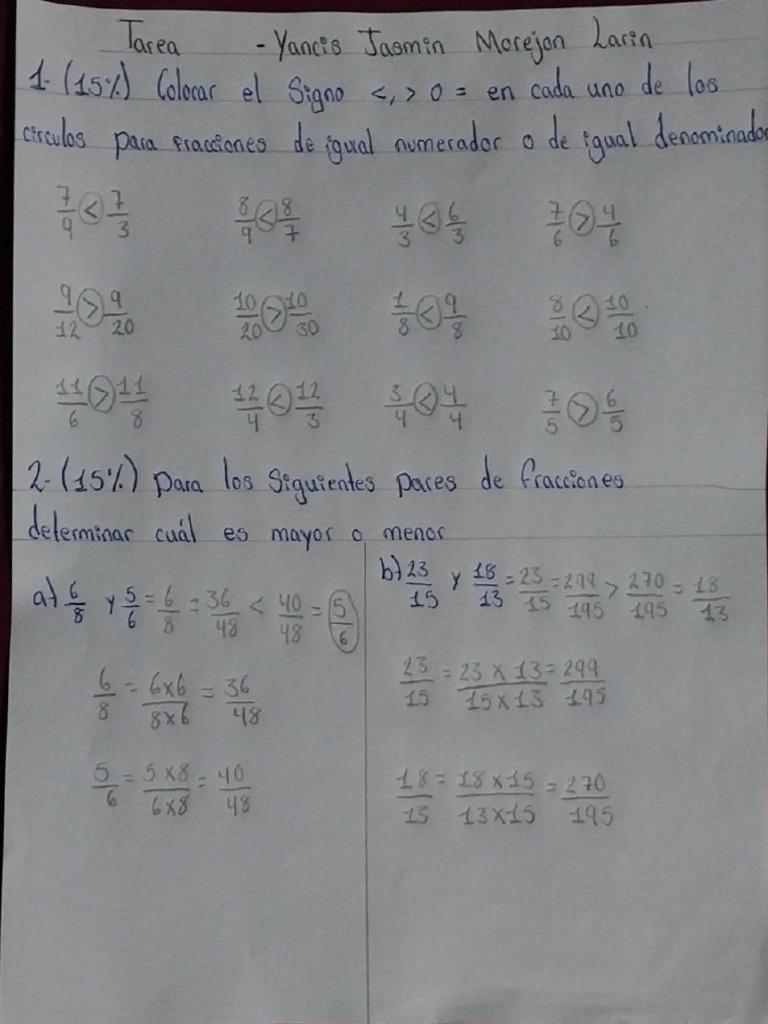 Tarea - Yancis Jasmin Morejon Larin
1- (15%) Colocar el Signo <, > o = en cada uno de los
circulos para fracciones de igual numerador o de igual denominador
7/9 < 7/3 8/9 < 8/7 4/3 < 6/3 7/6 > 4/6
9/12 > 9/20 10/20 > 10/30 1/8 < 9/8 8/10 < 10/10
11/6 > 11/8 12/4 < 12/3 3/4 < 4/4 7/5 > 6/5
2- (15%) para los Siguientes pares de fracciones
determinar cuál es mayor o menor
a) 6/8 y 5/6 = 6/8 = 36/48 < 40/48 = 5/6
6/8 = 6x6/8x6 = 36/48
5/6 = 5x8/6x8 = 40/48
b) 23/15 y 18/13 = 23/15 = 299/195 > 270/195 = 18/13
23/15 = 23 x 13/15 x 13 = 299/195
18/13 = 18 x 15/13 x 15 = 270/195